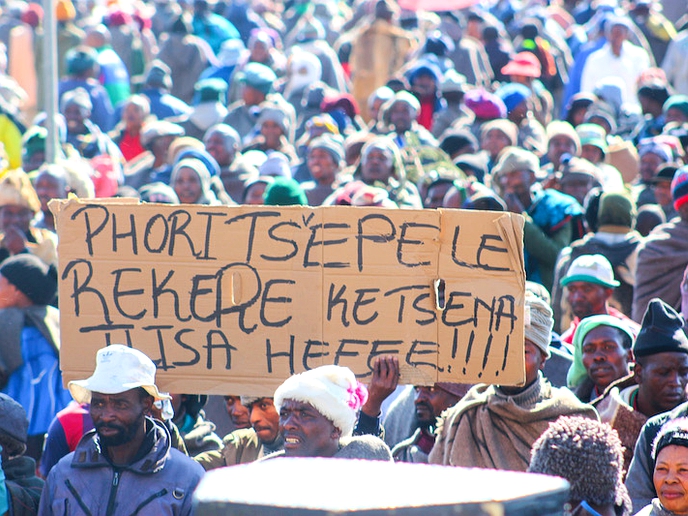 PHORI TŠEPELE
REKERE KETSENA
TLISA HEEEE!!!!